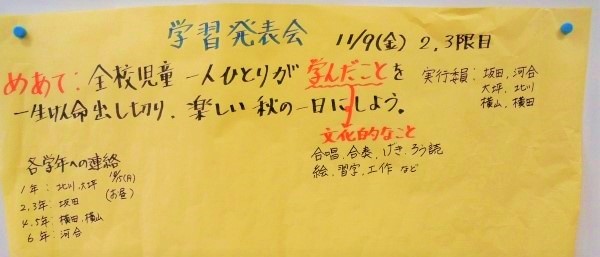 学習発表会 11/9(金) 2,3限目
めあて:全校児童 一人ひとりが 学んだことを
一生けん命出し切り、楽しい 秋の一日にしよう。
文化的なこと
合唱、合奏、げき、ろう読
絵、習字、工作 など
実行委員:坂田、河合
大坪、北川
横山、横田
各学年への連絡
1年:北川、大坪
2,3年:坂田
4,5年:横田、横山
6年:河合
(お昼)